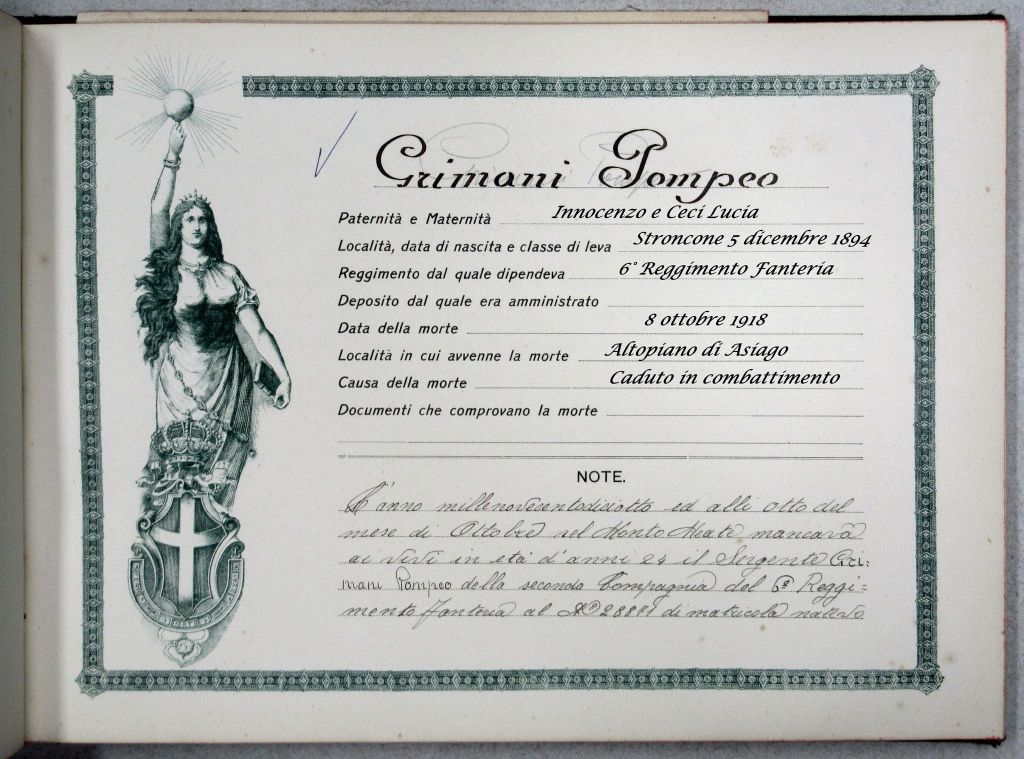 Grimani Pompeo
Paternità e Maternità Innocenzo e Ceci Lucia
Località, data di nascita e classe di leva Stroncone 5 dicembre 1894
Reggimento dal quale dipendeva 6° Reggimento Fanteria
Deposito dal quale era amministrato
Data della morte 8 ottobre 1918
Località in cui avvenne la morte Altopiano di Asiago
Causa della morte Caduto in combattimento
Documenti che comprovano la morte
NOTE.
L'anno millenovecentodiciotto ed alli otto del
mese di Ottobre nel Monte mancava
ai vivi in età d'anni 24 il Sergente Gri-
mani Pompeo della seconda Compagnia del 6° Reggi-
mento Fanteria al N° di matricola nativo